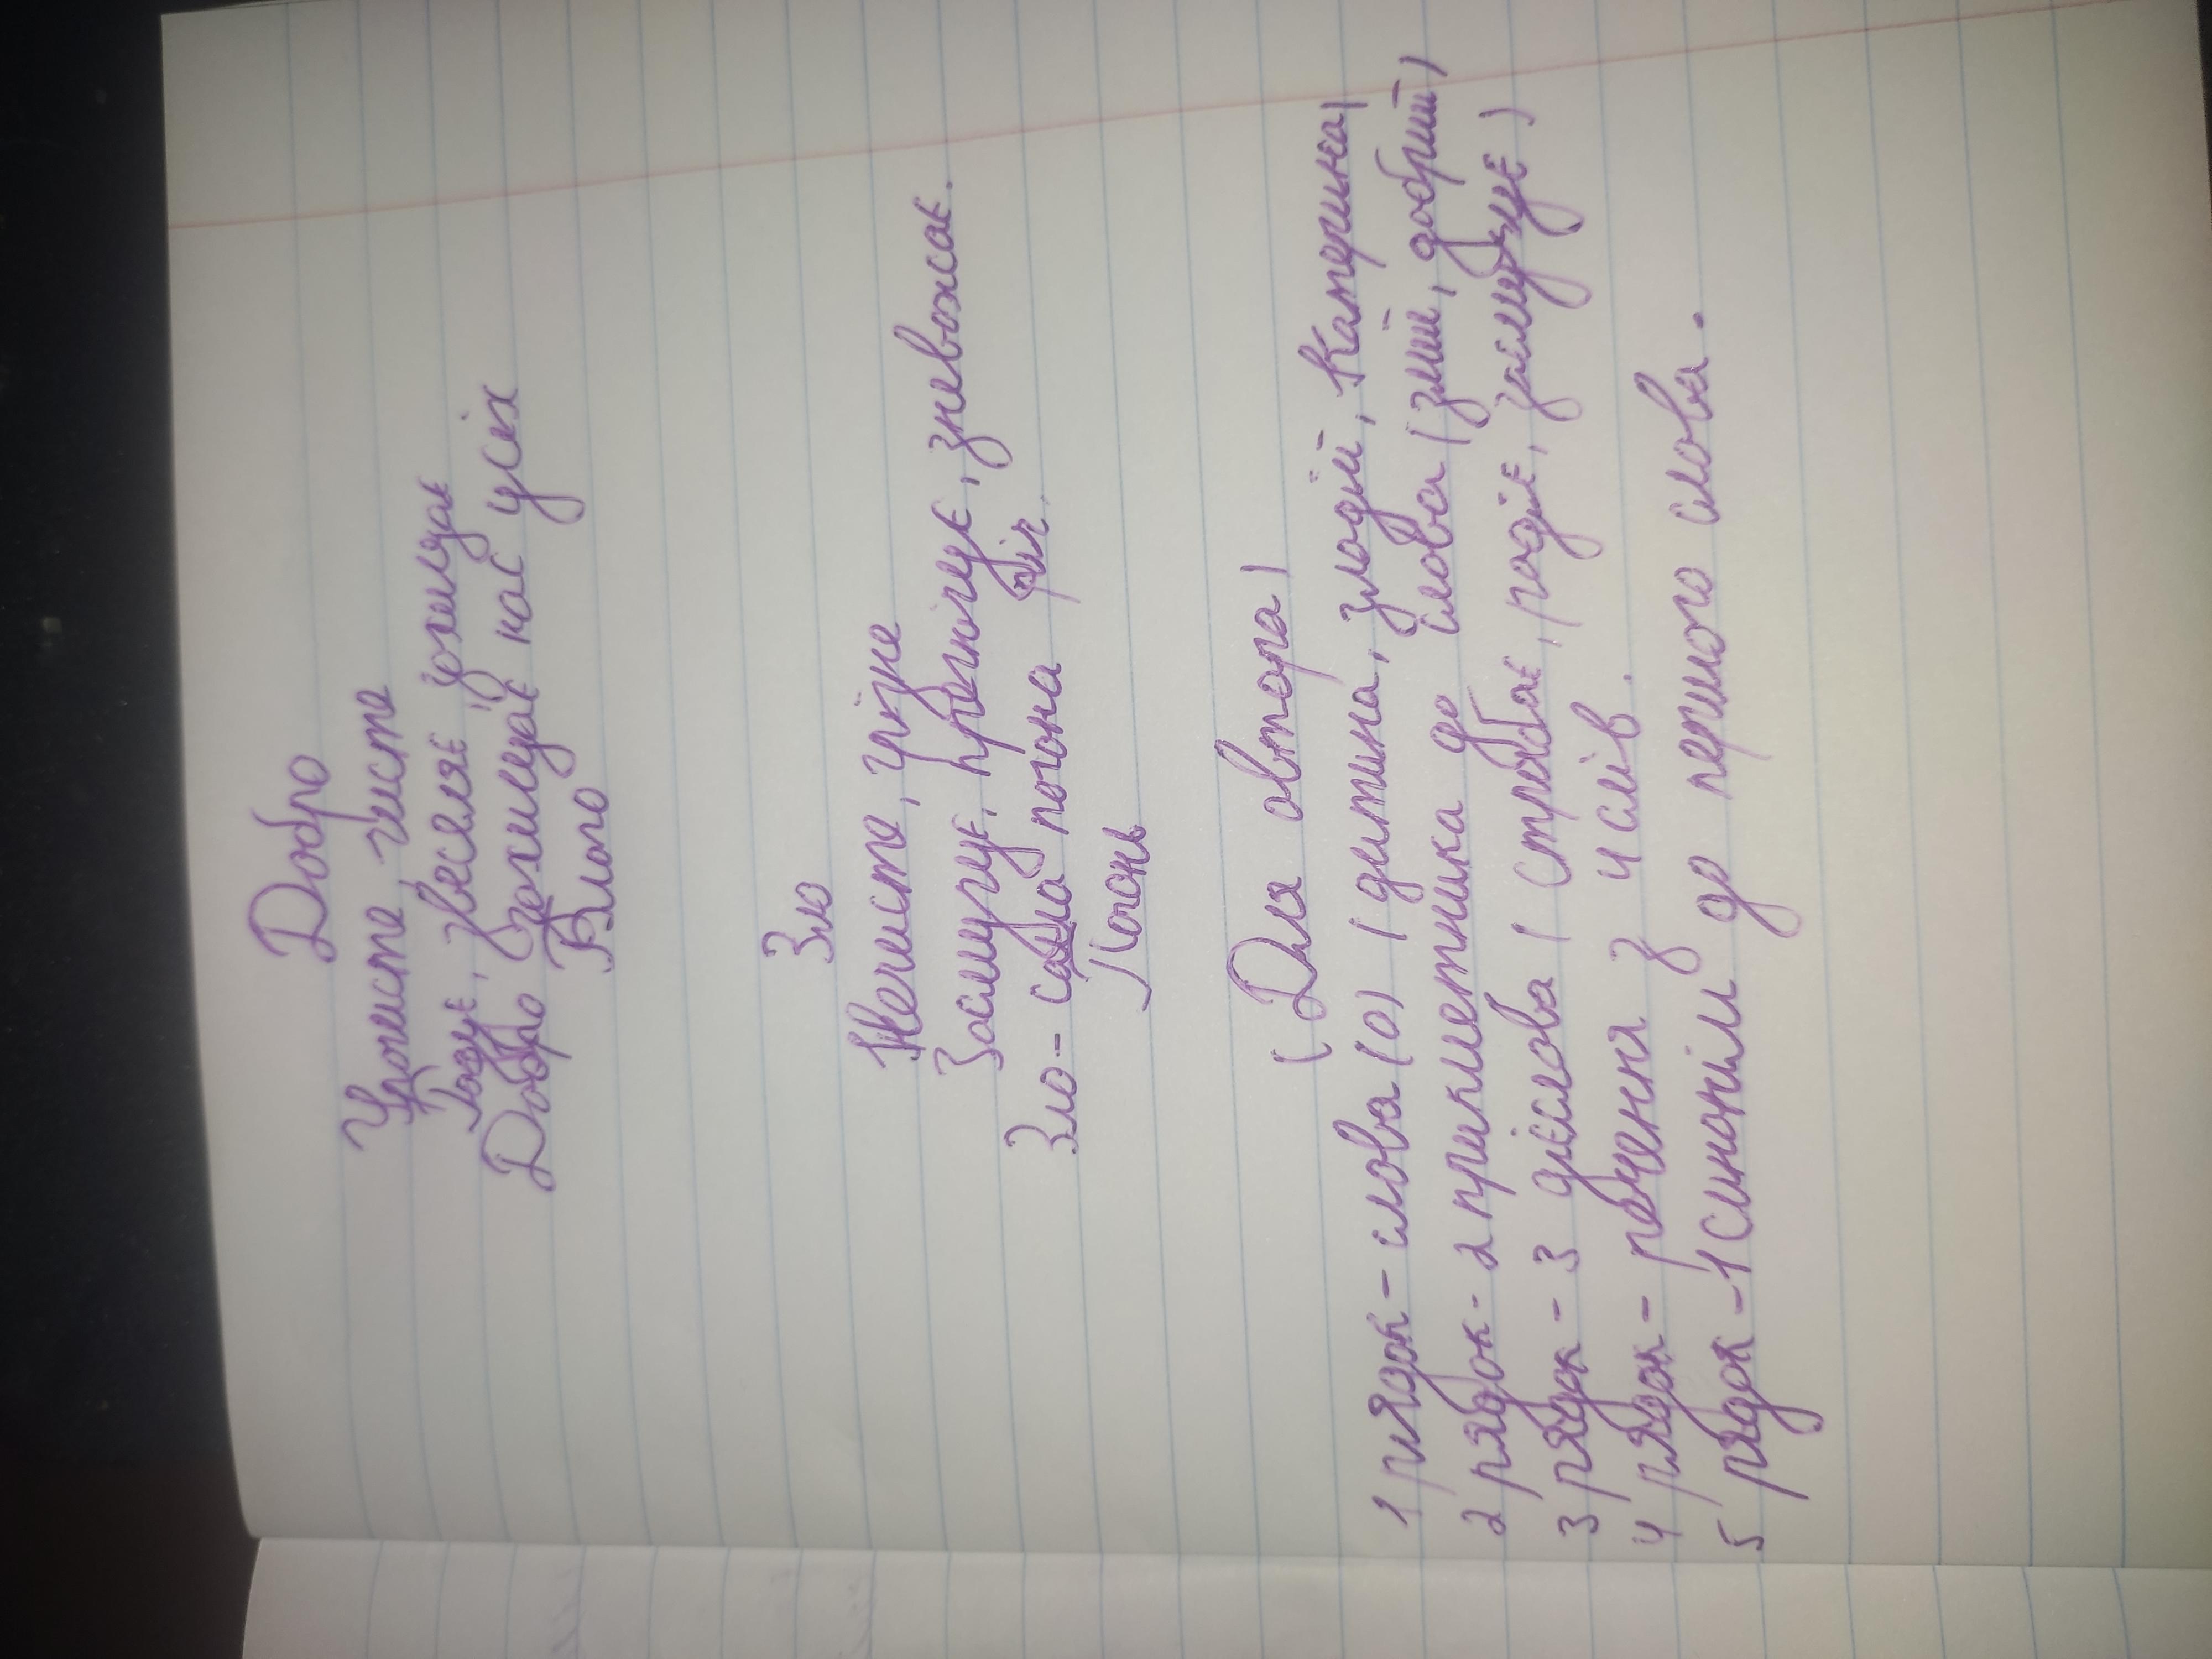 Добро
Урочисте, чисте
Радує, звеселяє, захищає
Добро захищає нас усіх
Благо
Зло
Нечисте, грізне
Засмучує, пригнічує, зневажає.
Зло - сама погана річ.
Погань
(Для автора)
1 рядок - слова (о) (дитина, злодій, Катерина)
2 рядок - 2 прикметника до слова (злий, добрий)
3 рядок - 3 дієслова (стрибає, радіє, засмучує)
4 рядок - речення з 4 слів.
5 рядок - 1 синонім до першого слова.